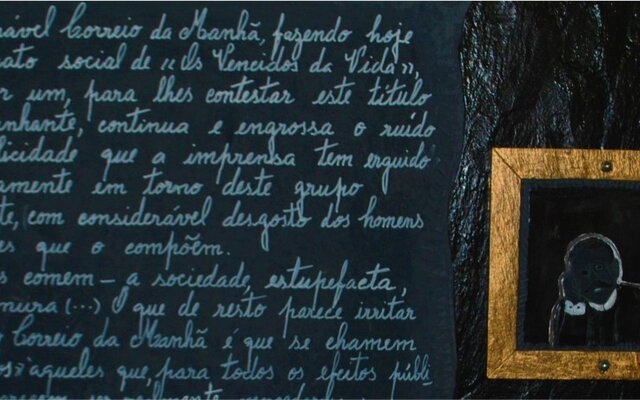 ável Correio da Manhã, fazendo hoje
ato social de «Os Vencidos da Vida»,
r um, para lhes contestar este titulo
nhante, continua e engrossa o ruído
licidade que a imprensa tem erguido
amente em torno deste grupo
te, com considerável desgosto dos homens
es que o compõem.
s comem — a sociedade, estupefacta,
mura (...) O que de resto parece irritar
o Correio da Manhã é que se chamem
os» aqueles que, para todos os efeitos públi